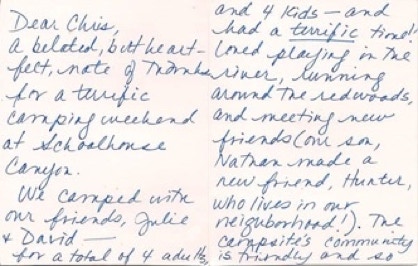 Dear Chris,
a belated, but heart-
felt, note of Thanks
for a terrific
camping weekend
at Schoolhouse
Canyon.
We camped with
our friends, Julie
& David —
for a total of 4 adults,
and 4 kids — and
had a terrific time!
Loved playing in the
river, running
around the redwoods,
and meeting new
friends (our son,
Nathan made a
new friend, Hunter,
who lives in our
neighborhood!). The
campsite's community
is friendly and so